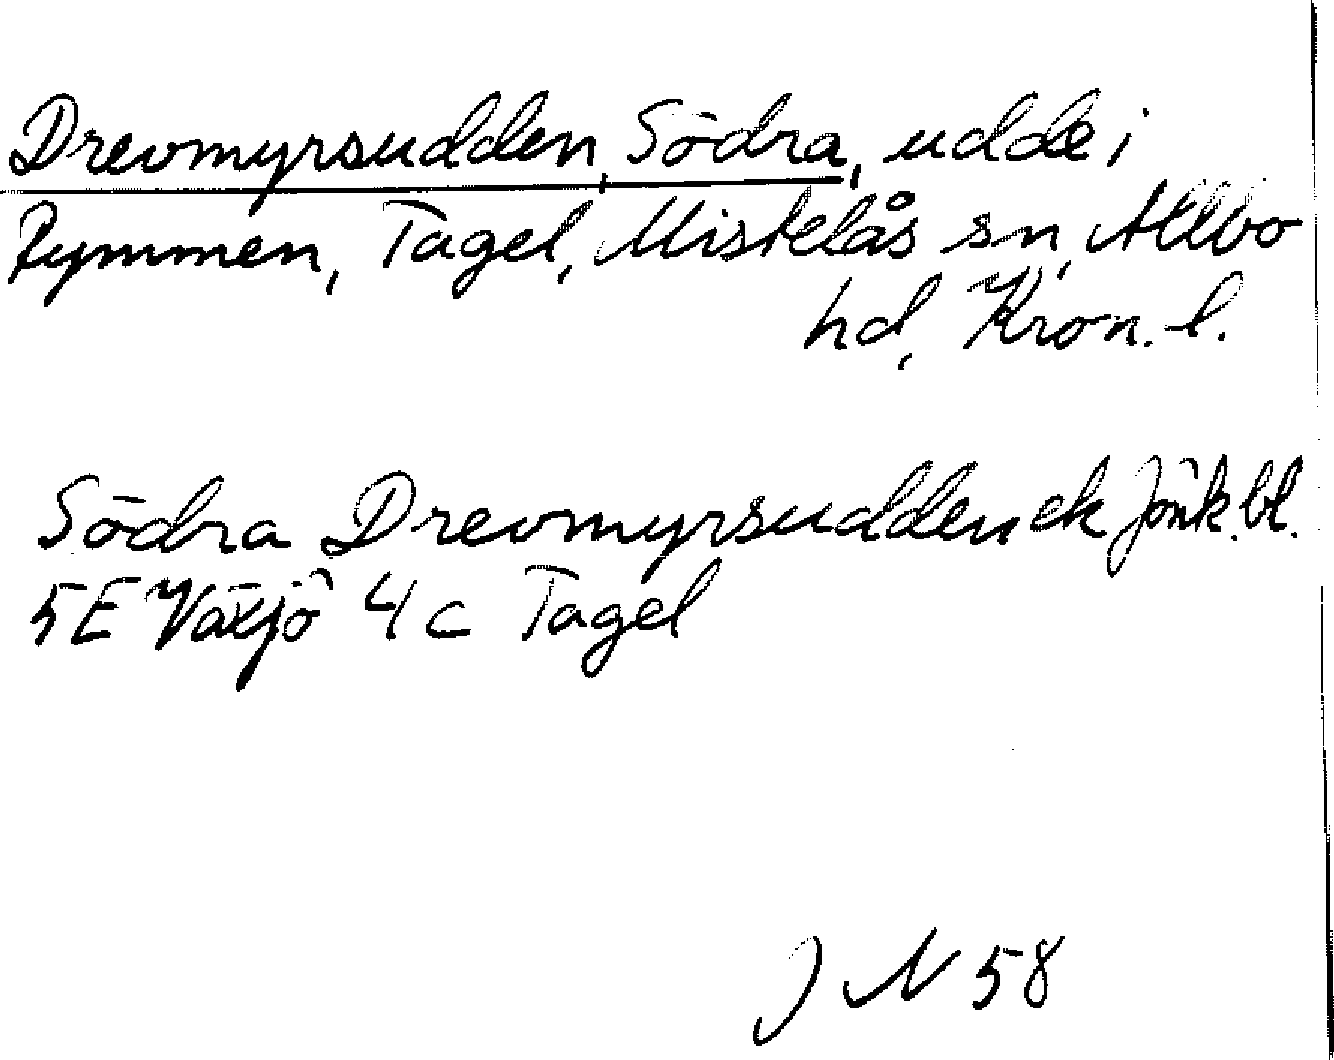 Drevmyrsudden, Södra, udde i
Rymmen, Tagel, Mistelås sn, Allbo
hd, Kron. l.
Södra Drevmyrsudden ek Jönk. bl.
5E Växjö 4 c Tagel
J N 58